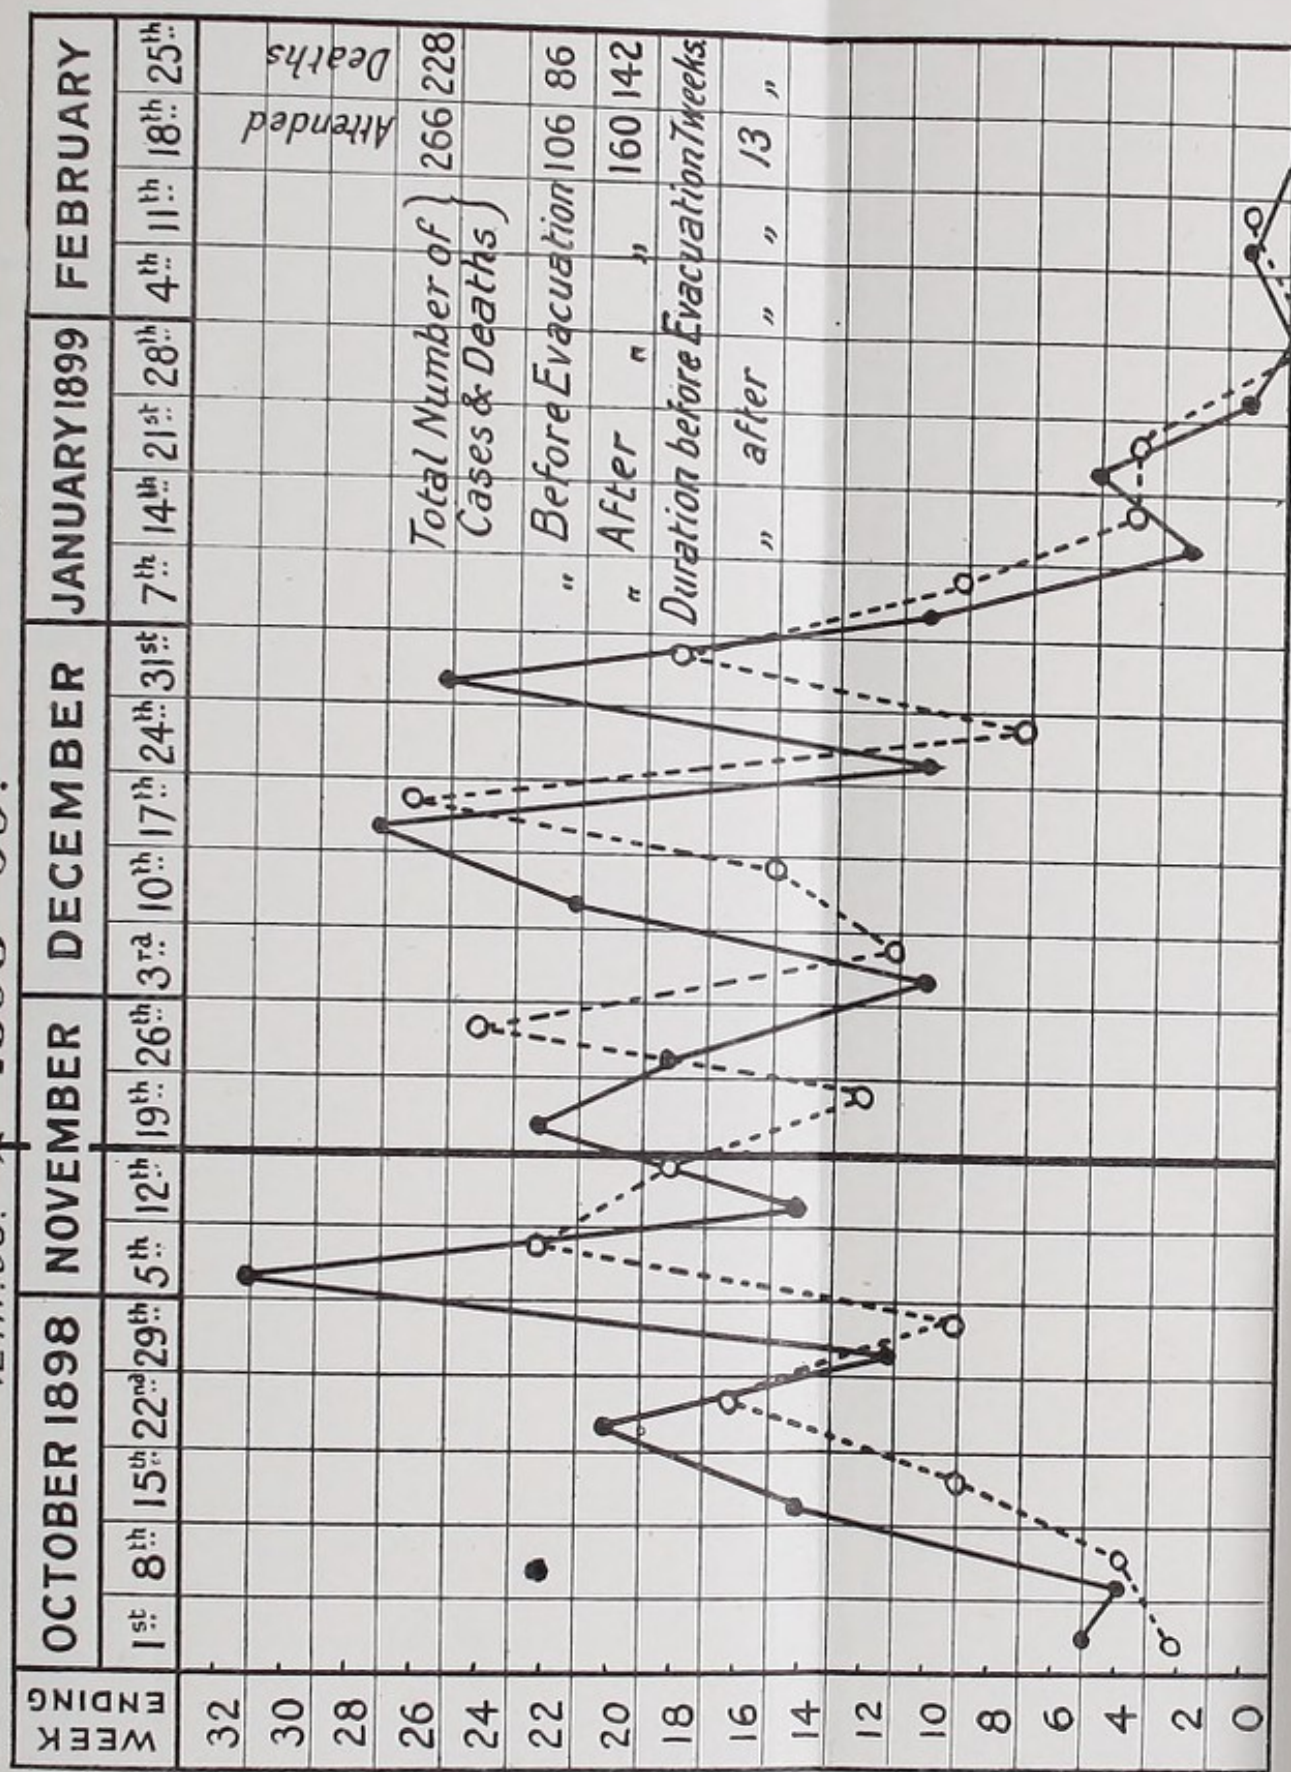 WEEK ENDING
OCTOBER 1898 NOVEMBER DECEMBER JANUARY 1899 FEBRUARY
1st 8th 15th 22nd 29th 5th 12th 19th 26th 3rd 10th 17th 24th 31st 7th 14th 21st 28th 4th 11th 18th 25th
32
30
28
26
24
22
20
18
16
14
12
10
8
6
4
2
0
Attended Deaths
Total Number of } 266 228
Cases & Deaths }
" Before Evacuation 106 86
" After " " 160 142
Duration before Evacuation 7 weeks.
" after " " 13 "